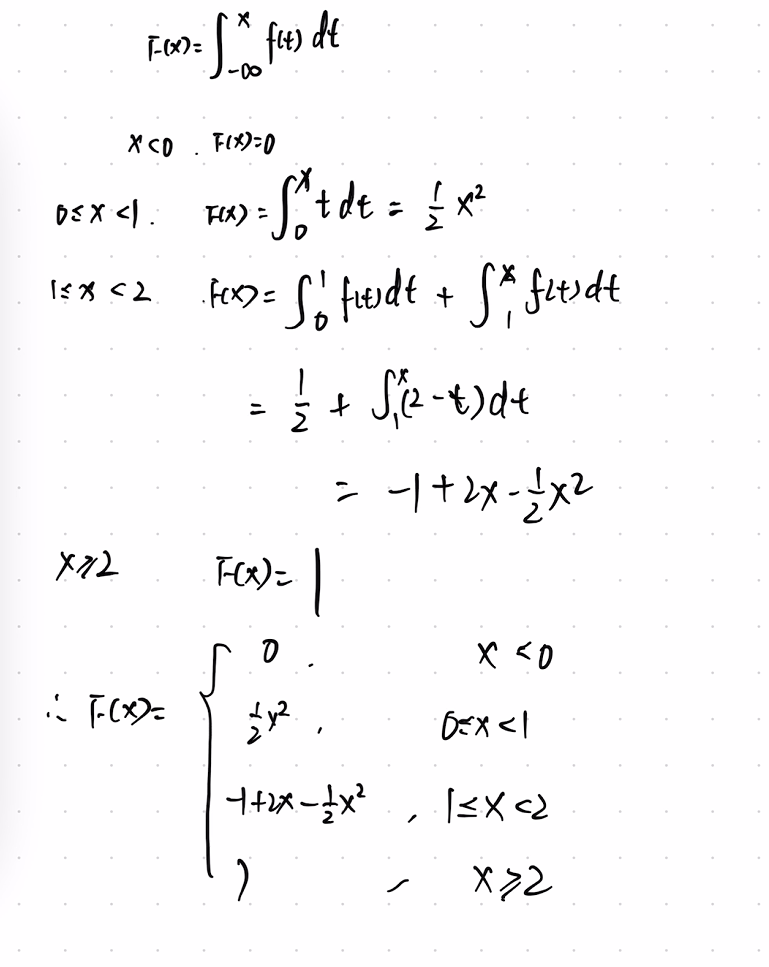 F(x)=∫_{-∞}^{x} f(t) dt
x<0 . F(x)=0
0≤x<1. F(x)=∫_{0}^{x} t dt = 1/2 x²
1≤x<2 .F(x)=∫_{0}^{1} f(t)dt + ∫_{1}^{x} f(t)dt
= 1/2 + ∫_{1}^{x}(2-t)dt
= -1+2x-1/2x²
x⩾2 F(x)=1
∴ F(x)= { 0 . x<0
1/2x² , 0≤x<1
-1+2x-1/2x² , 1≤x<2
1 , x⩾2